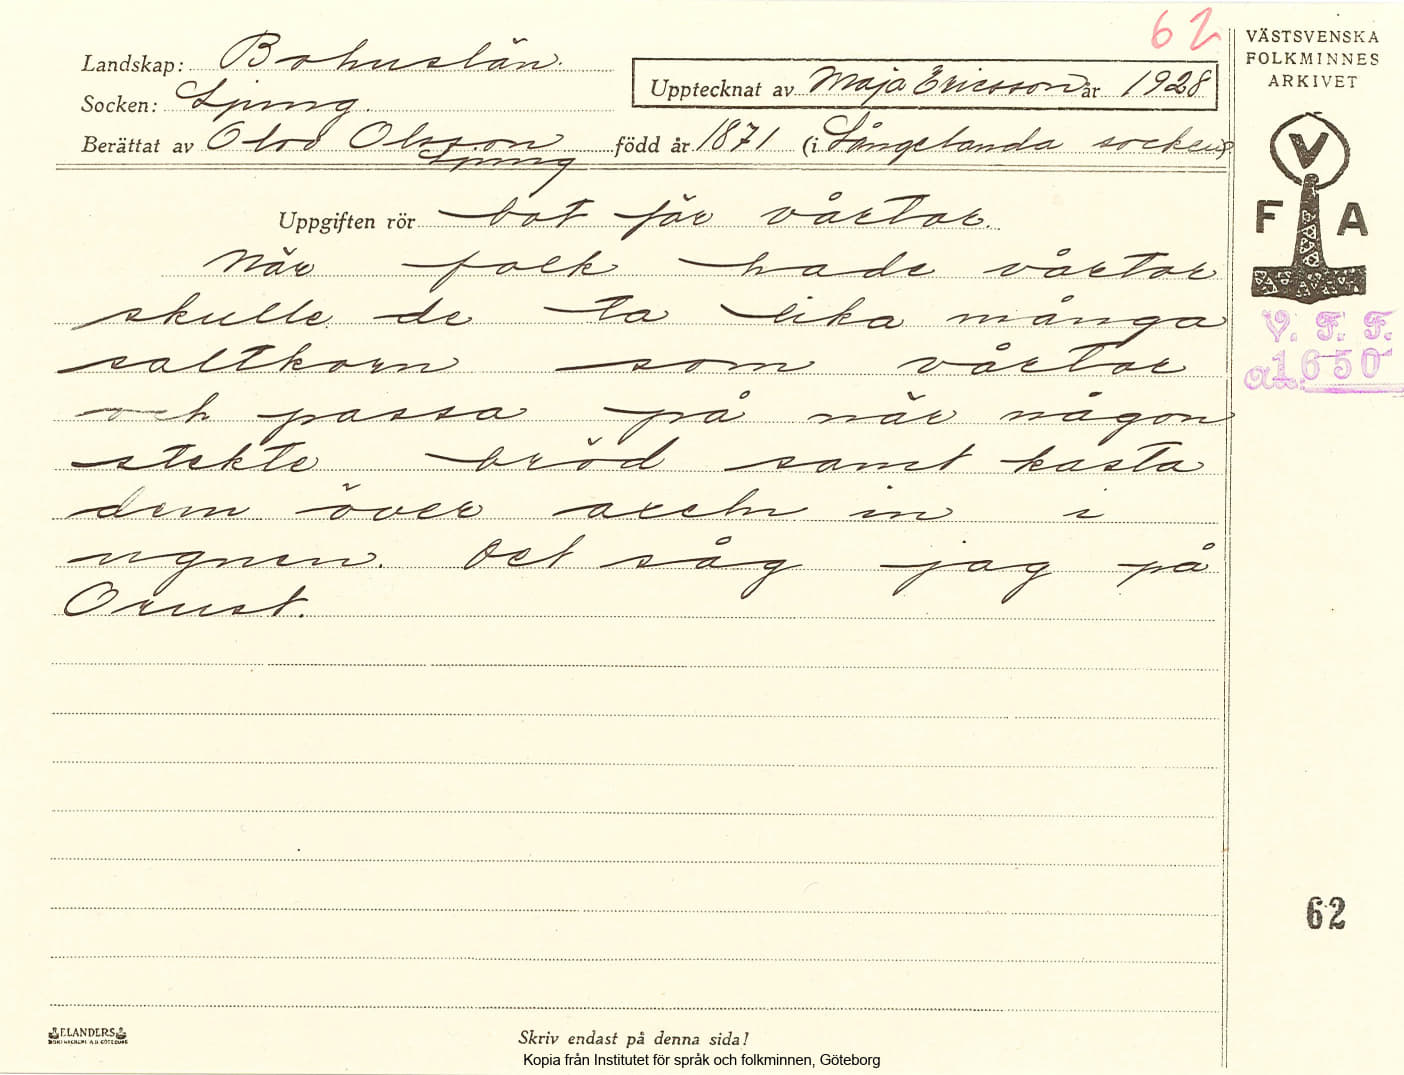 62
VÄSTSVENSKA
FOLKMINNES
ARKIVET
Landskap: Bohuslän.
Upptecknat av Maja Ericsson år 1928
Socken: Ljung.
Berättat av Olov Olsson född år 1871 (i Långelanda socken)
Ljung
V
F A
Uppgiften rör bot för vårtor.
När folk hade vårtor
skulle de ta lika många
saltkorn som vårtor
och passa på när någon
stekte bröd samt kasta
dem över axeln in i
ugnen. Det såg jag på
Orust.
V. F. F.
1650
62
ELANDERS
Skriv endast på denna sida!
Kopia från Institutet för språk och folkminnen, Göteborg